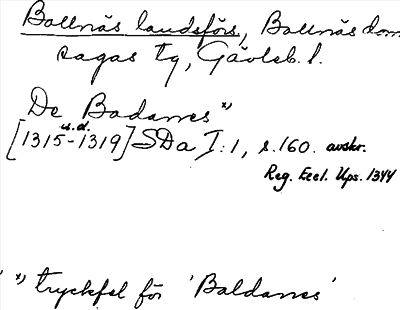 Bollnäs landsförs, Bollnäs dom
sagas tg, Gävleb. l.
De Badanes *)
u.d.
[1315-1319] SDa I:1, s.160. avskr.
Reg. Eccl. Ups. 1344
*) tryckfel för 'Baldanes'